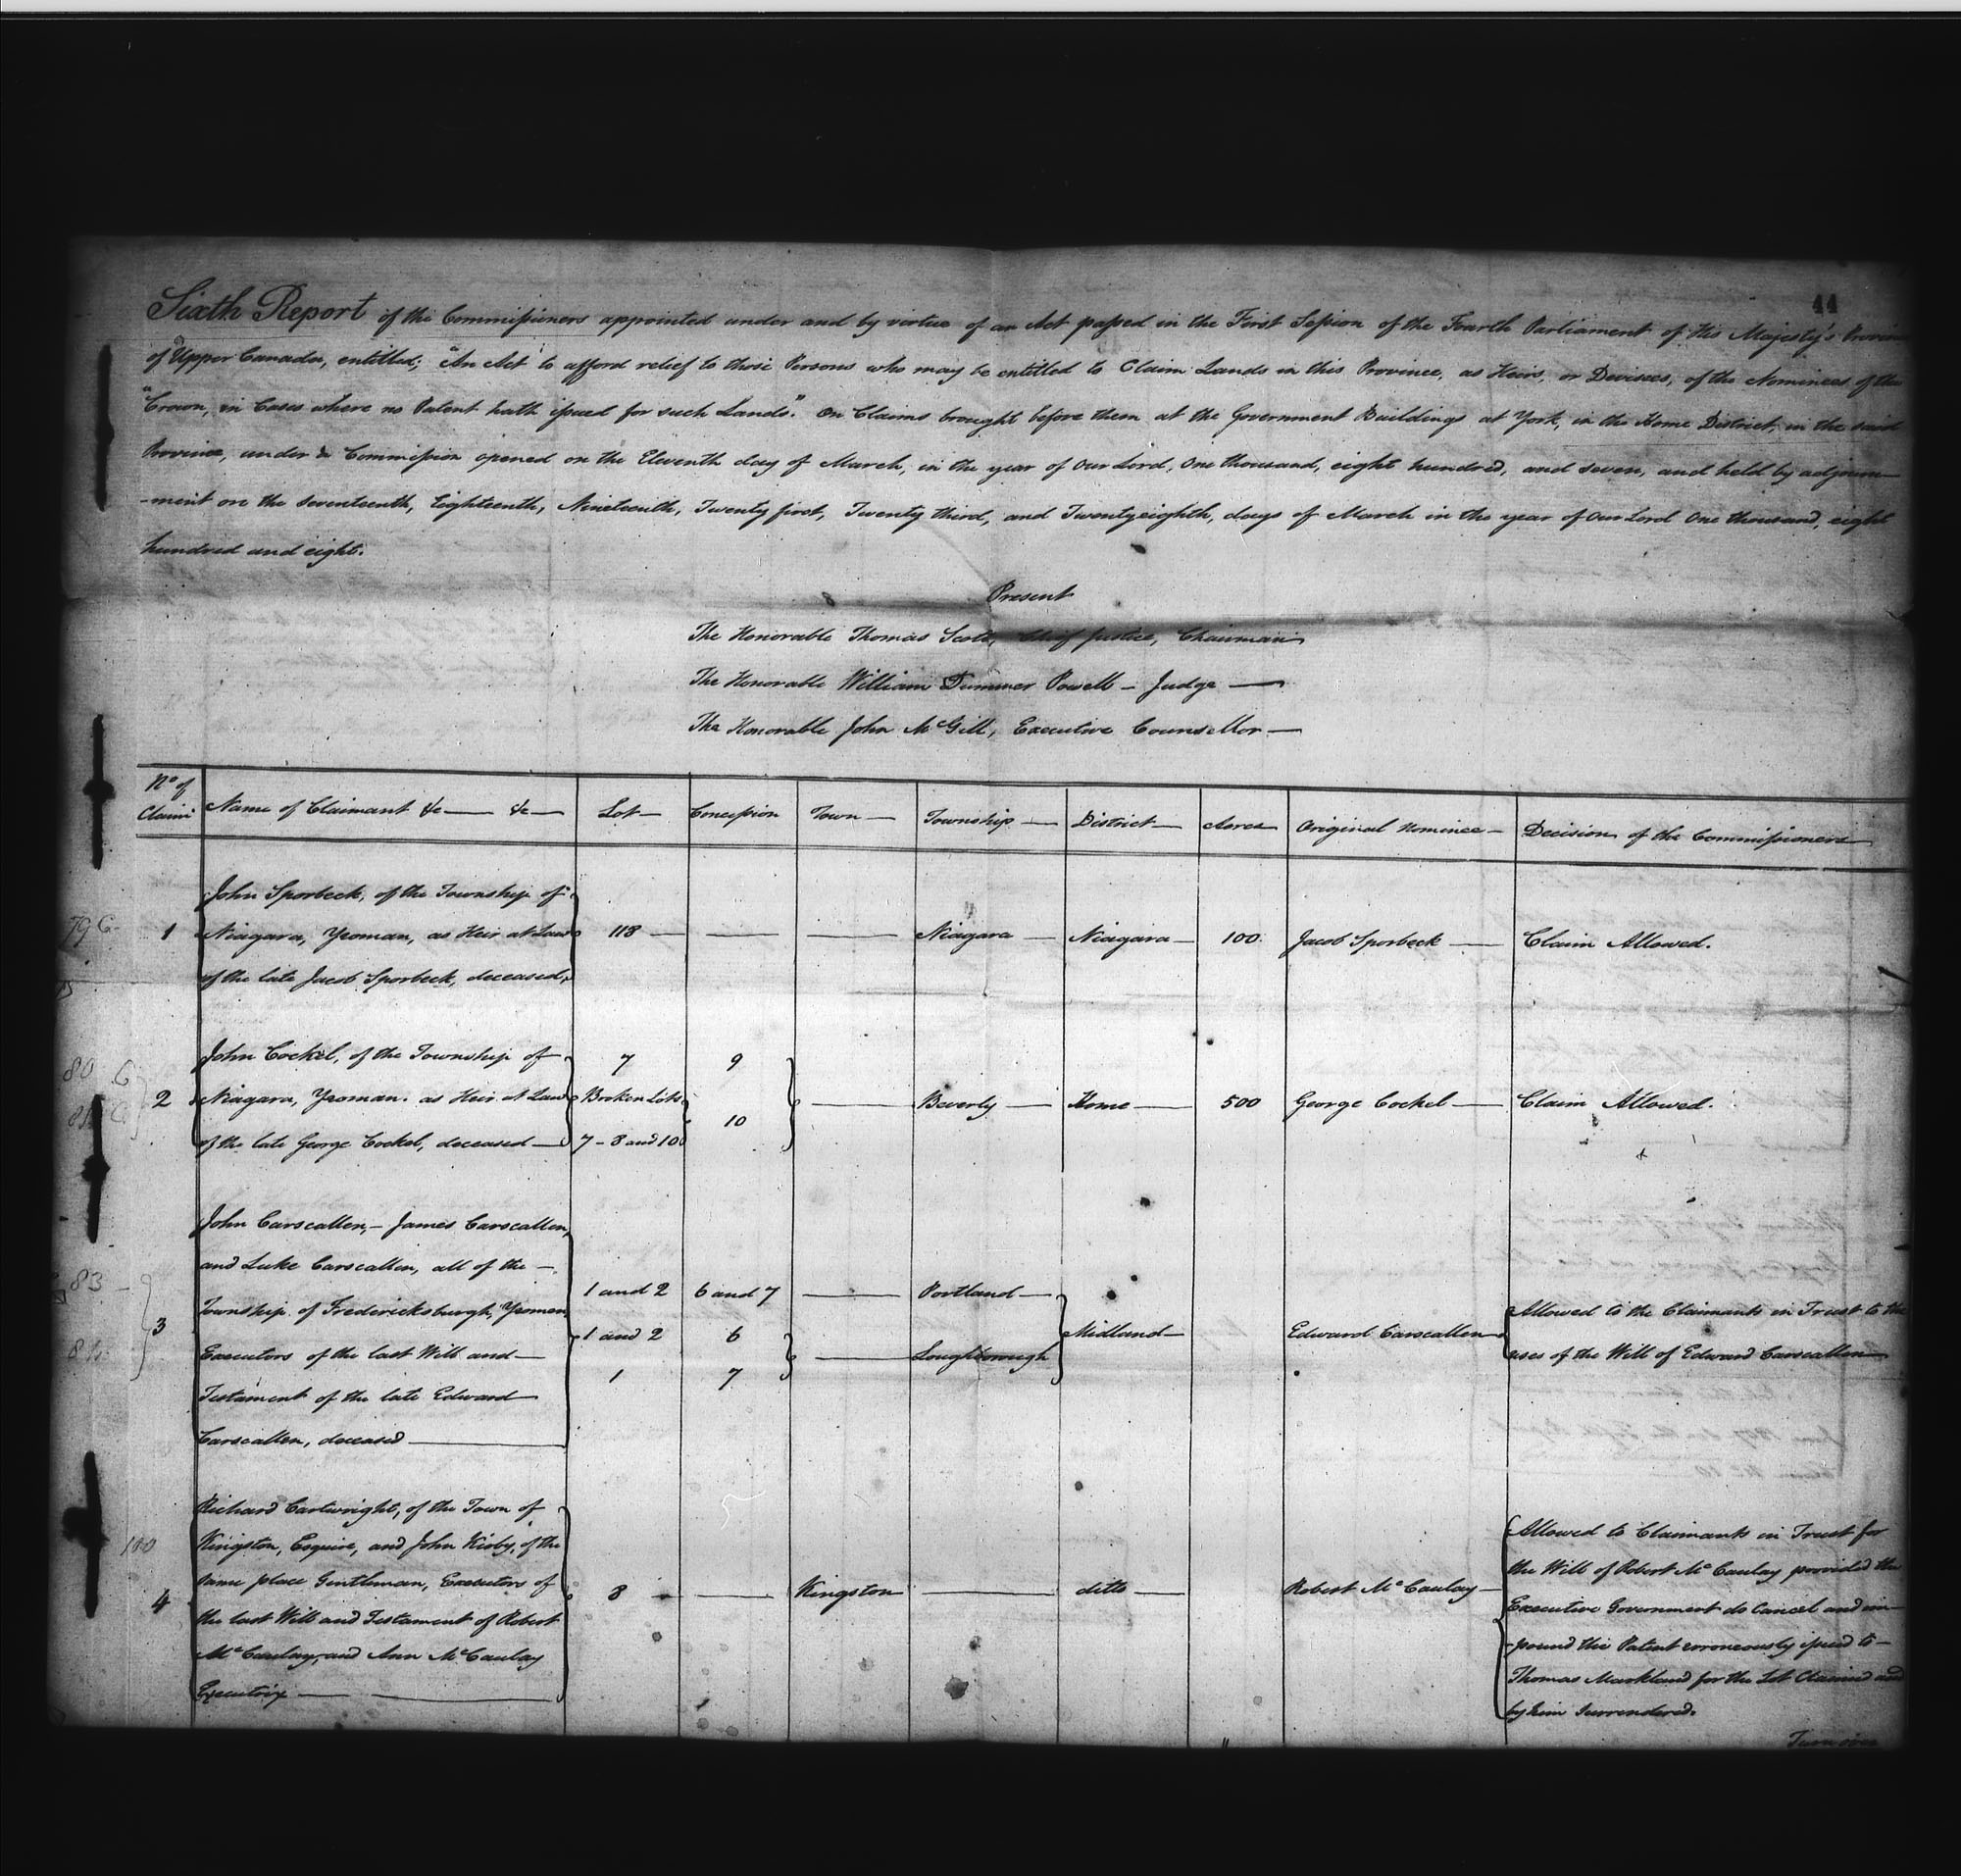 44
Sixth Report of the Commissioners appointed under and by virtue of an Act passed in the First Session of the Fourth Parliament of His Majesty's Province
of Upper Canada, entitled; "An Act to afford relief to those Persons who may be entitled to Claim Lands in this Province, as Heirs, or Devisees, of the Nominees of the
"Crown, in Cases where no Patent hath issued for such Lands". On Claims brought before them at the Government Buildings at York, in the Home District, in the said
Province, under a Commission opened on the Eleventh day of March, in the year of Our Lord, One thousand, eight hundred, and seven, and held by adjourn-
-ment on the seventeenth, Eighteenth, Nineteenth, Twenty first, Twenty third, and Twenty eighth, days of March in the year of Our Lord One thousand, eight
hundred and eight.
Present
The Honorable Thomas Scott, Chief Justice, Chairman
The Honorable William Dummer Powell - Judge
The Honorable John McGill, Executive Counsellor
No of Claim | Name of Claimant &c — &c | Lot | Concession | Town | Township | District | Acres | Original Nominee | Decision of the Commissioners
79 C
1
John Sporbeck, of the Township of
Niagara, Yeoman, as Heir at Law
of the late Jacob Sporbeck, deceased,
118 — — Niagara Niagara 100. Jacob Sporbeck Claim Allowed.
80 C
2
John Cockel, of the Township of
Niagara, Yeoman. as Heir at Law
of the late George Cockel, deceased
7
Broken Lots
7 - 8 and 10
9
10
Beverly Home 500 George Cockel Claim Allowed.
83
3
John Carscallen, - James Carscallen,
and Luke Carscallen, all of the
Township of Fredericksburgh, Yeomen,
Executors of the last Will and
Testament of the late Edward
Carscallen, deceased
1 and 2 6 and 7 Portland
1 and 2 6
1 7
Loughborough
Midland
Edward Carscallen
Allowed to the Claimants in Trust to the
uses of the Will of Edward Carscallen
100
4
Richard Cartwright, of the Town of
Kingston, Esquire, and John Kirby, of the
same place Gentleman, Executors of
the last Will and Testament of Robert
McCaulay, and Ann McCaulay
Executrix
8 Kingston ditto Robert McCaulay
Allowed to Claimants in Trust for
the Will of Robert McCaulay provided the
Executive Government do Cancel and im-
-pound this Patent erroneously issued to
Thomas Markland for the Lot Claimed and
by him surrendered.
Turn over